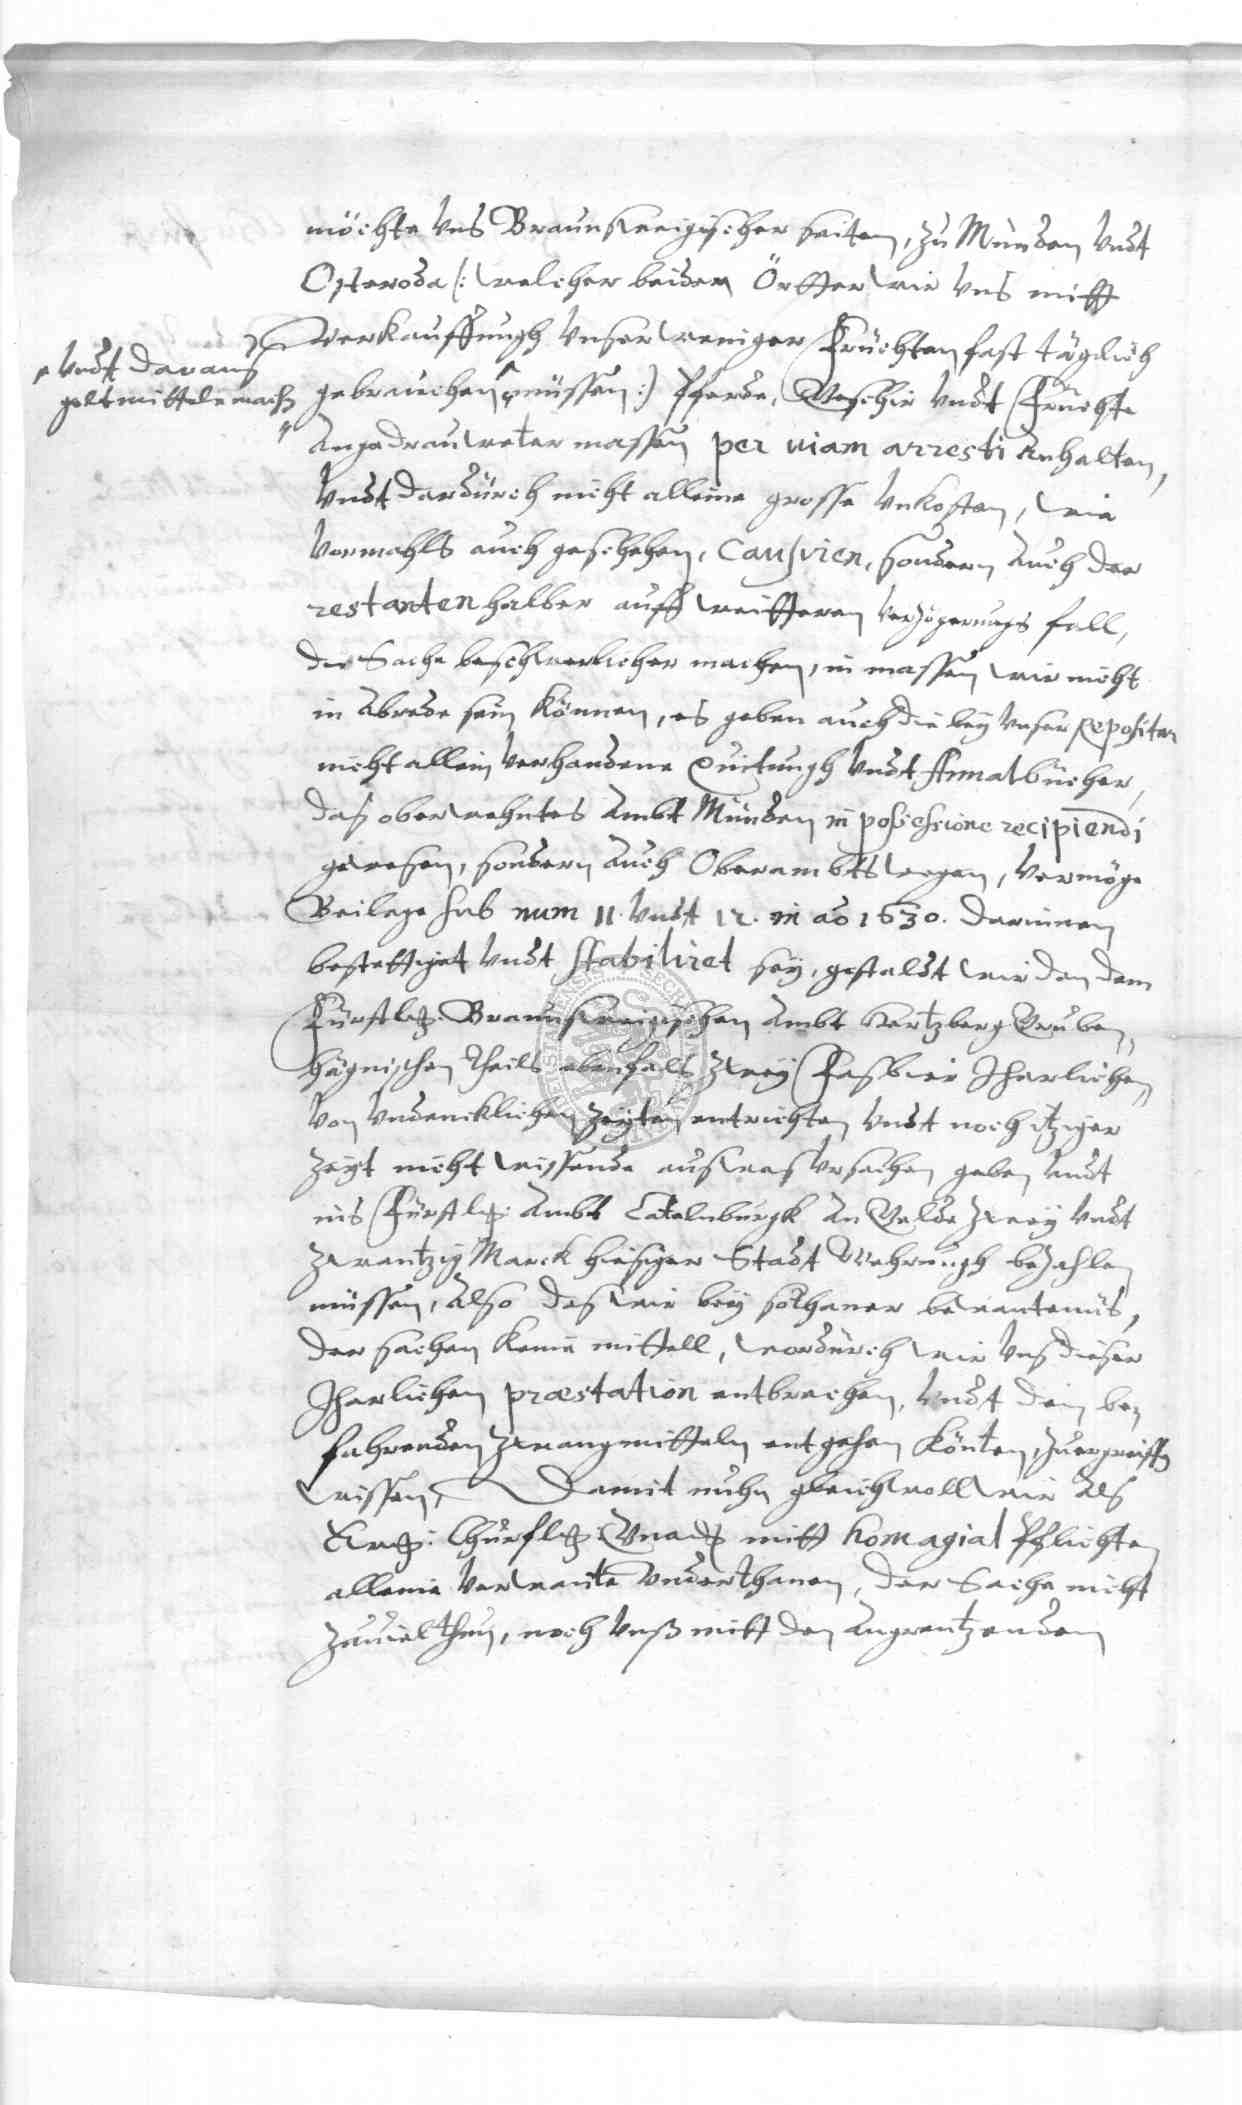 möchte vns Braunschweigischer seiten, zu Münden vndt
Osteroda (: welcher beider Örtter wir vns mitt
verkauffungh vnser weniger Früchten fast täglich
vndt daraus
geltmittele mach
gebrauchen müssen :) Pferde, Geschir vndt Früchte
angedrauweter massen per viam arresti anhalten,
vndt dardurch nicht alleine grosse vnkosten, wie
vormahls auch geschehen, causiren, sondern auch der
restanten halber auff weitteren verzögerungs fall,
die Sache beschwerlicher machen, in massen wir nicht
in abrede sein können, es geben auch die bey vnser repositur
nicht allein verhandene Quitungh vndt Annalbücher,
das oberwehntes Ambt Münden in possessione recipiendi
gewesen, sondern auch Oberambtswegen, vermöge
Beilage sub num 11. vndt 12. in ao 1630. darinnen
bestettiget vndt stabiliret sey, gestaldt wir den dem
Fürstl. Braunschweigischen Ambt Hertzberg Gruben
hägnischen theils ebenfals zwey Fasbier Jharlichen
von vndencklichen Zeyten entrichten vndt noch itziger
Zeyt nicht wissende aus was vrsachen geben vndt
ins Fürstl. Ambt Catelnburgk an Gelde zwey vndt
zwantzig Marck hiesiger Stadt Wehrungh bezahlen
müssen, also das wir bey sothaner bewantenüs,
der sachen keine mittell, wordurch wir vns dieser
Jharlichen præstation entbrechen, vndt den be
fahrenden zwangmitteln entgehen könten, zuergreiffen
wissen, Damit nuhn gleichwoll wir als
Churfl. Gnad. mitt homagial Pflichten
alleine verwante vnderthanen, der Sache nicht
zuviel thun, noch vnß mitt den angrentzenden